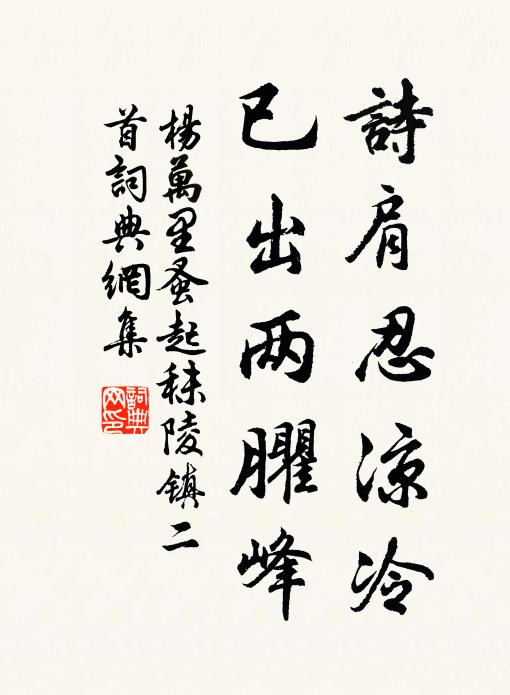 詩肩忍涼冷
已出两臞峰
楊萬里蚤起秣陵鎮二
首詞典網集
詞典网印